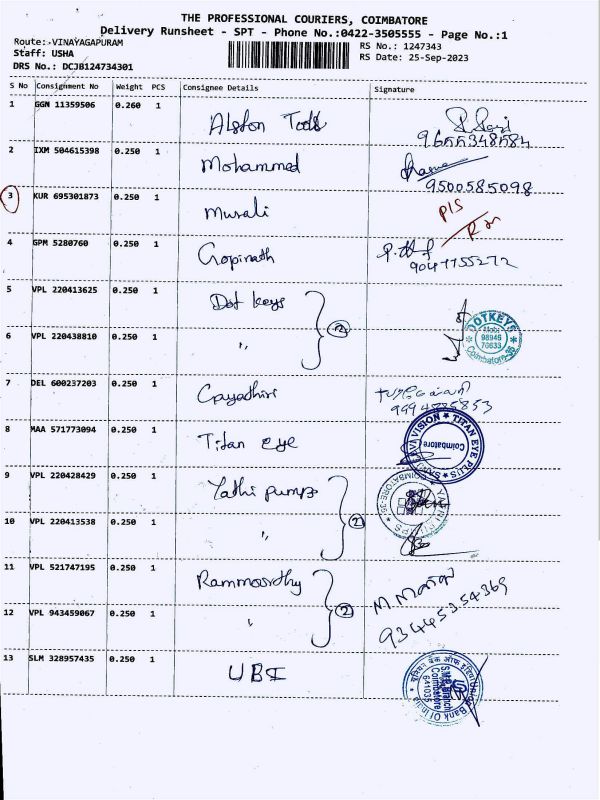 THE PROFESSIONAL COURIERS, COIMBATORE
Delivery Runsheet - SPT - Phone No.:0422-3505555 - Page No.:1
Route:-VINAYAGAPURAM
RS No.: 1247343
Staff: USHA
RS Date: 25-Sep-2023
DRS No.: DCJB124734301
S No Consignment No Weight PCS Consignee Details Signature
1 GGN 11359506 0.260 1 Alston Tools
9655348584
2 IXM 504615398 0.250 1 Mohammed
9500585098
3 KUR 695301873 0.250 1 Murali
4 GPM 5280760 0.250 1 Gopinath
5 VPL 220413625 0.250 1 Dot keys
6 VPL 220438810 0.250 1 " (2)
DOTKEYS
Mobi
98946
70633
Coimbatore-35
7 DEL 600237203 0.250 1 Gayathiri
8 MAA 571773094 0.250 1 Titan eye
VISION ★ TITAN EYE PLUS
Coimbatore
9 VPL 220428429 0.250 1 Yathi pumps
COIMBATORE-35
10 VPL 220413538 0.250 1 " (2)
11 VPL 521747195 0.250 1 Rammoorthy
12 VPL 943459067 0.250 1 " (2)
9344535 4369
13 SLM 328957435 0.250 1 UBI
Union Bank Of India
Coimbatore
641035